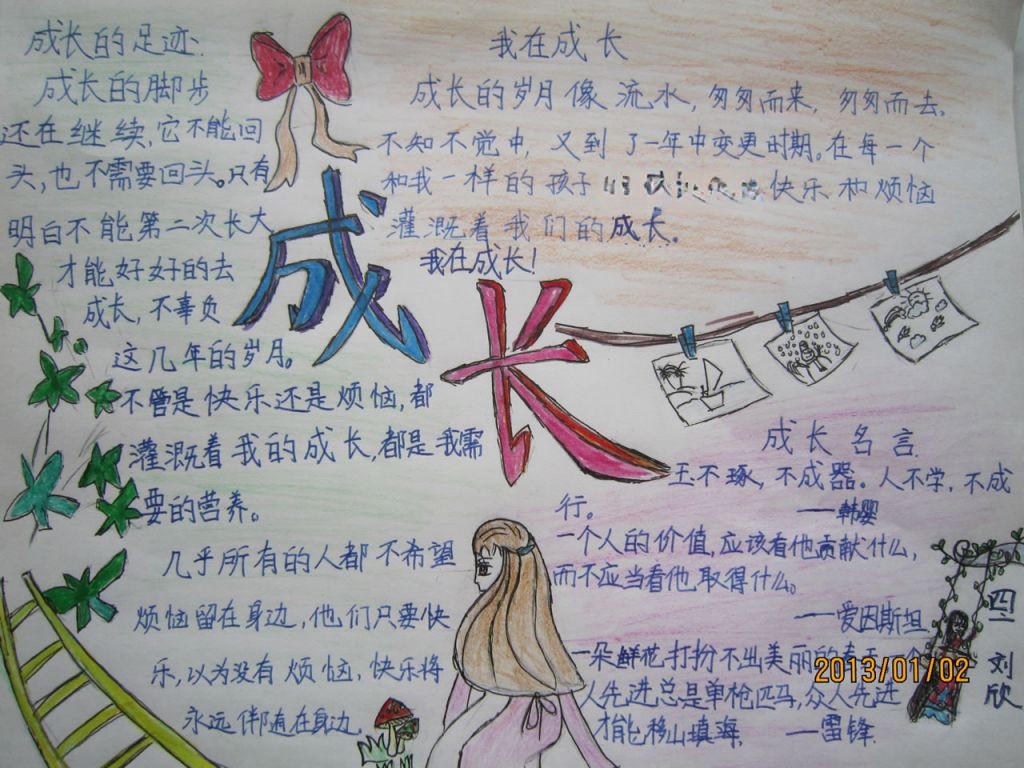 成长的足迹
成长的脚步
还在继续,它不能回
头,也不需要回头。只有
明白不能第二次长大
才能好好的去
成长,不辜负
这几年的岁月。
不管是快乐还是烦恼,都
灌溉着我的成长,都是我需
要的营养。
几乎所有的人都不希望
烦恼留在身边,他们只要快
乐,以为没有烦恼,快乐将
永远伴随在身边.
成长
我在成长
成长的岁月像流水,匆匆而来,匆匆而去,
不知不觉中,又到了一年中交更时期。在每一个
和我一样的孩子 快乐和烦恼
灌溉着我们的成长。
我在成长!
成长名言
玉不琢,不成器。人不学,不成
行。
——韩婴
一个人的价值,应该看他贡献什么,
而不应当看他取得什么。
——爱因斯坦
一朵鲜花打扮不出美丽的 一个
人先进总是单枪匹马,众人先进
才能移山填海.
——雷锋
四
刘欣
2013/01/02